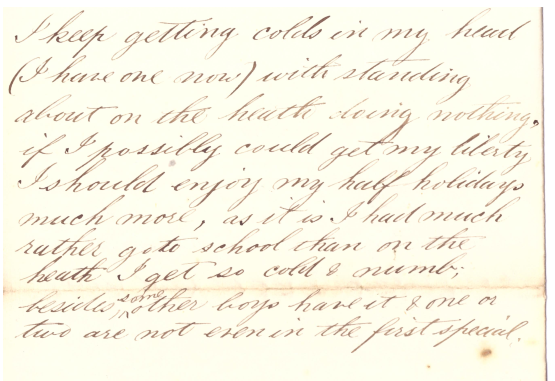 I keep getting colds in my head
(I have one now) with standing
about on the heath doing nothing,
if I possibly could get my liberty
I should enjoy my half holidays
much more, as it is I had much
rather go to school than on the
heath I get so cold & numb;
besides, some other boys have it & one or
two are not even in the first special.